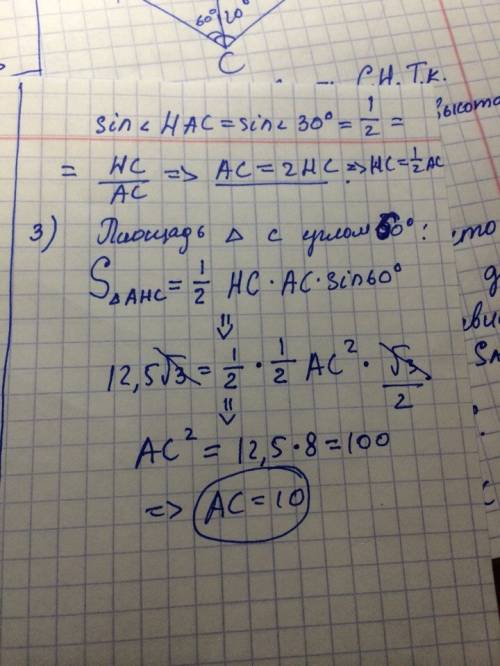 60° 20°
C
С.Н.Т.к.
sin< HAC = sin< 30° = 1/2 =
= HC/AC => AC = 2HC => HC = 1/2 AC
3) Площадь △ с углом 60°:
S△AHC = 1/2 HC · AC · sin60°
⇓
12,5√3 = 1/2 · 1/2 AC² · √3/2
⇓
AC² = 12,5 · 8 = 100
=> AC = 10